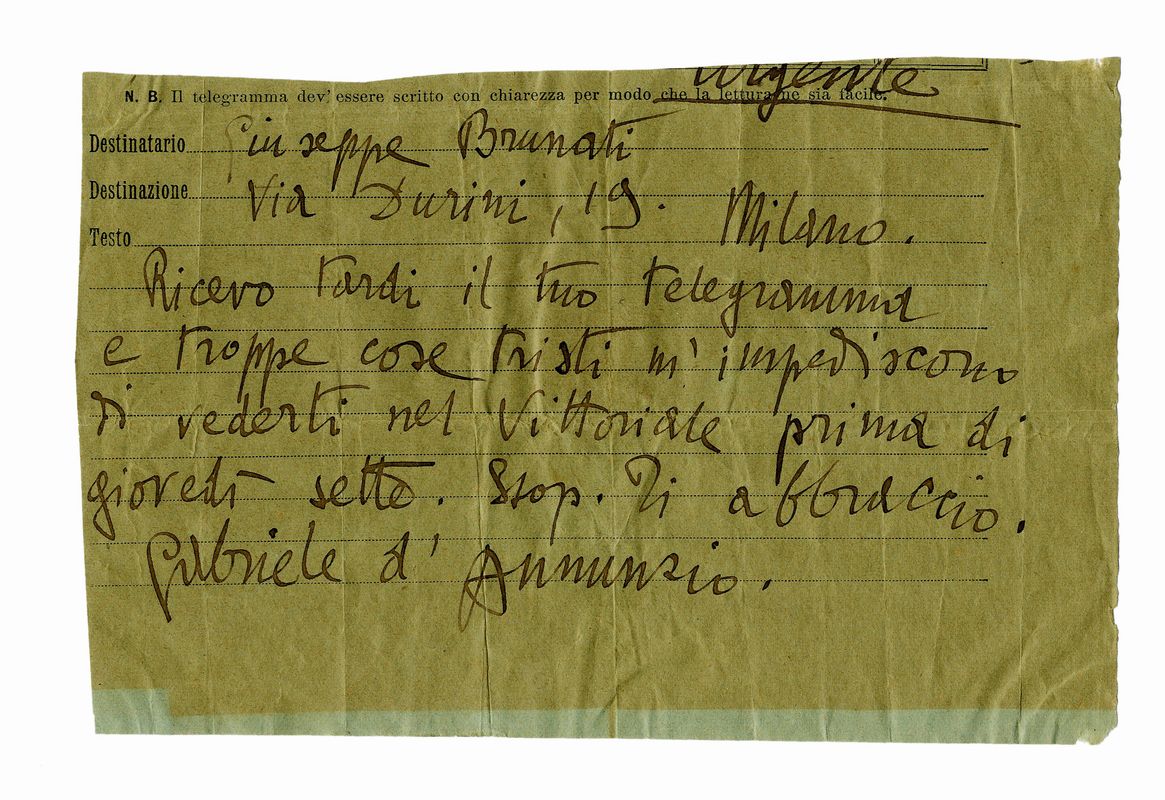 urgente
N. B. Il telegramma dev' essere scritto con chiarezza per modo che la lettura ne sia facile.
Destinatario Giuseppe Brunati
Destinazione Via Durini, 19. Milano.
Testo
Ricevo tardi il tuo telegramma
e troppe cose tristi m' impediscono
di vederti nel Vittoriale prima di
giovedì sette. Stop. Ti abbraccio.
Gabriele d' Annunzio.